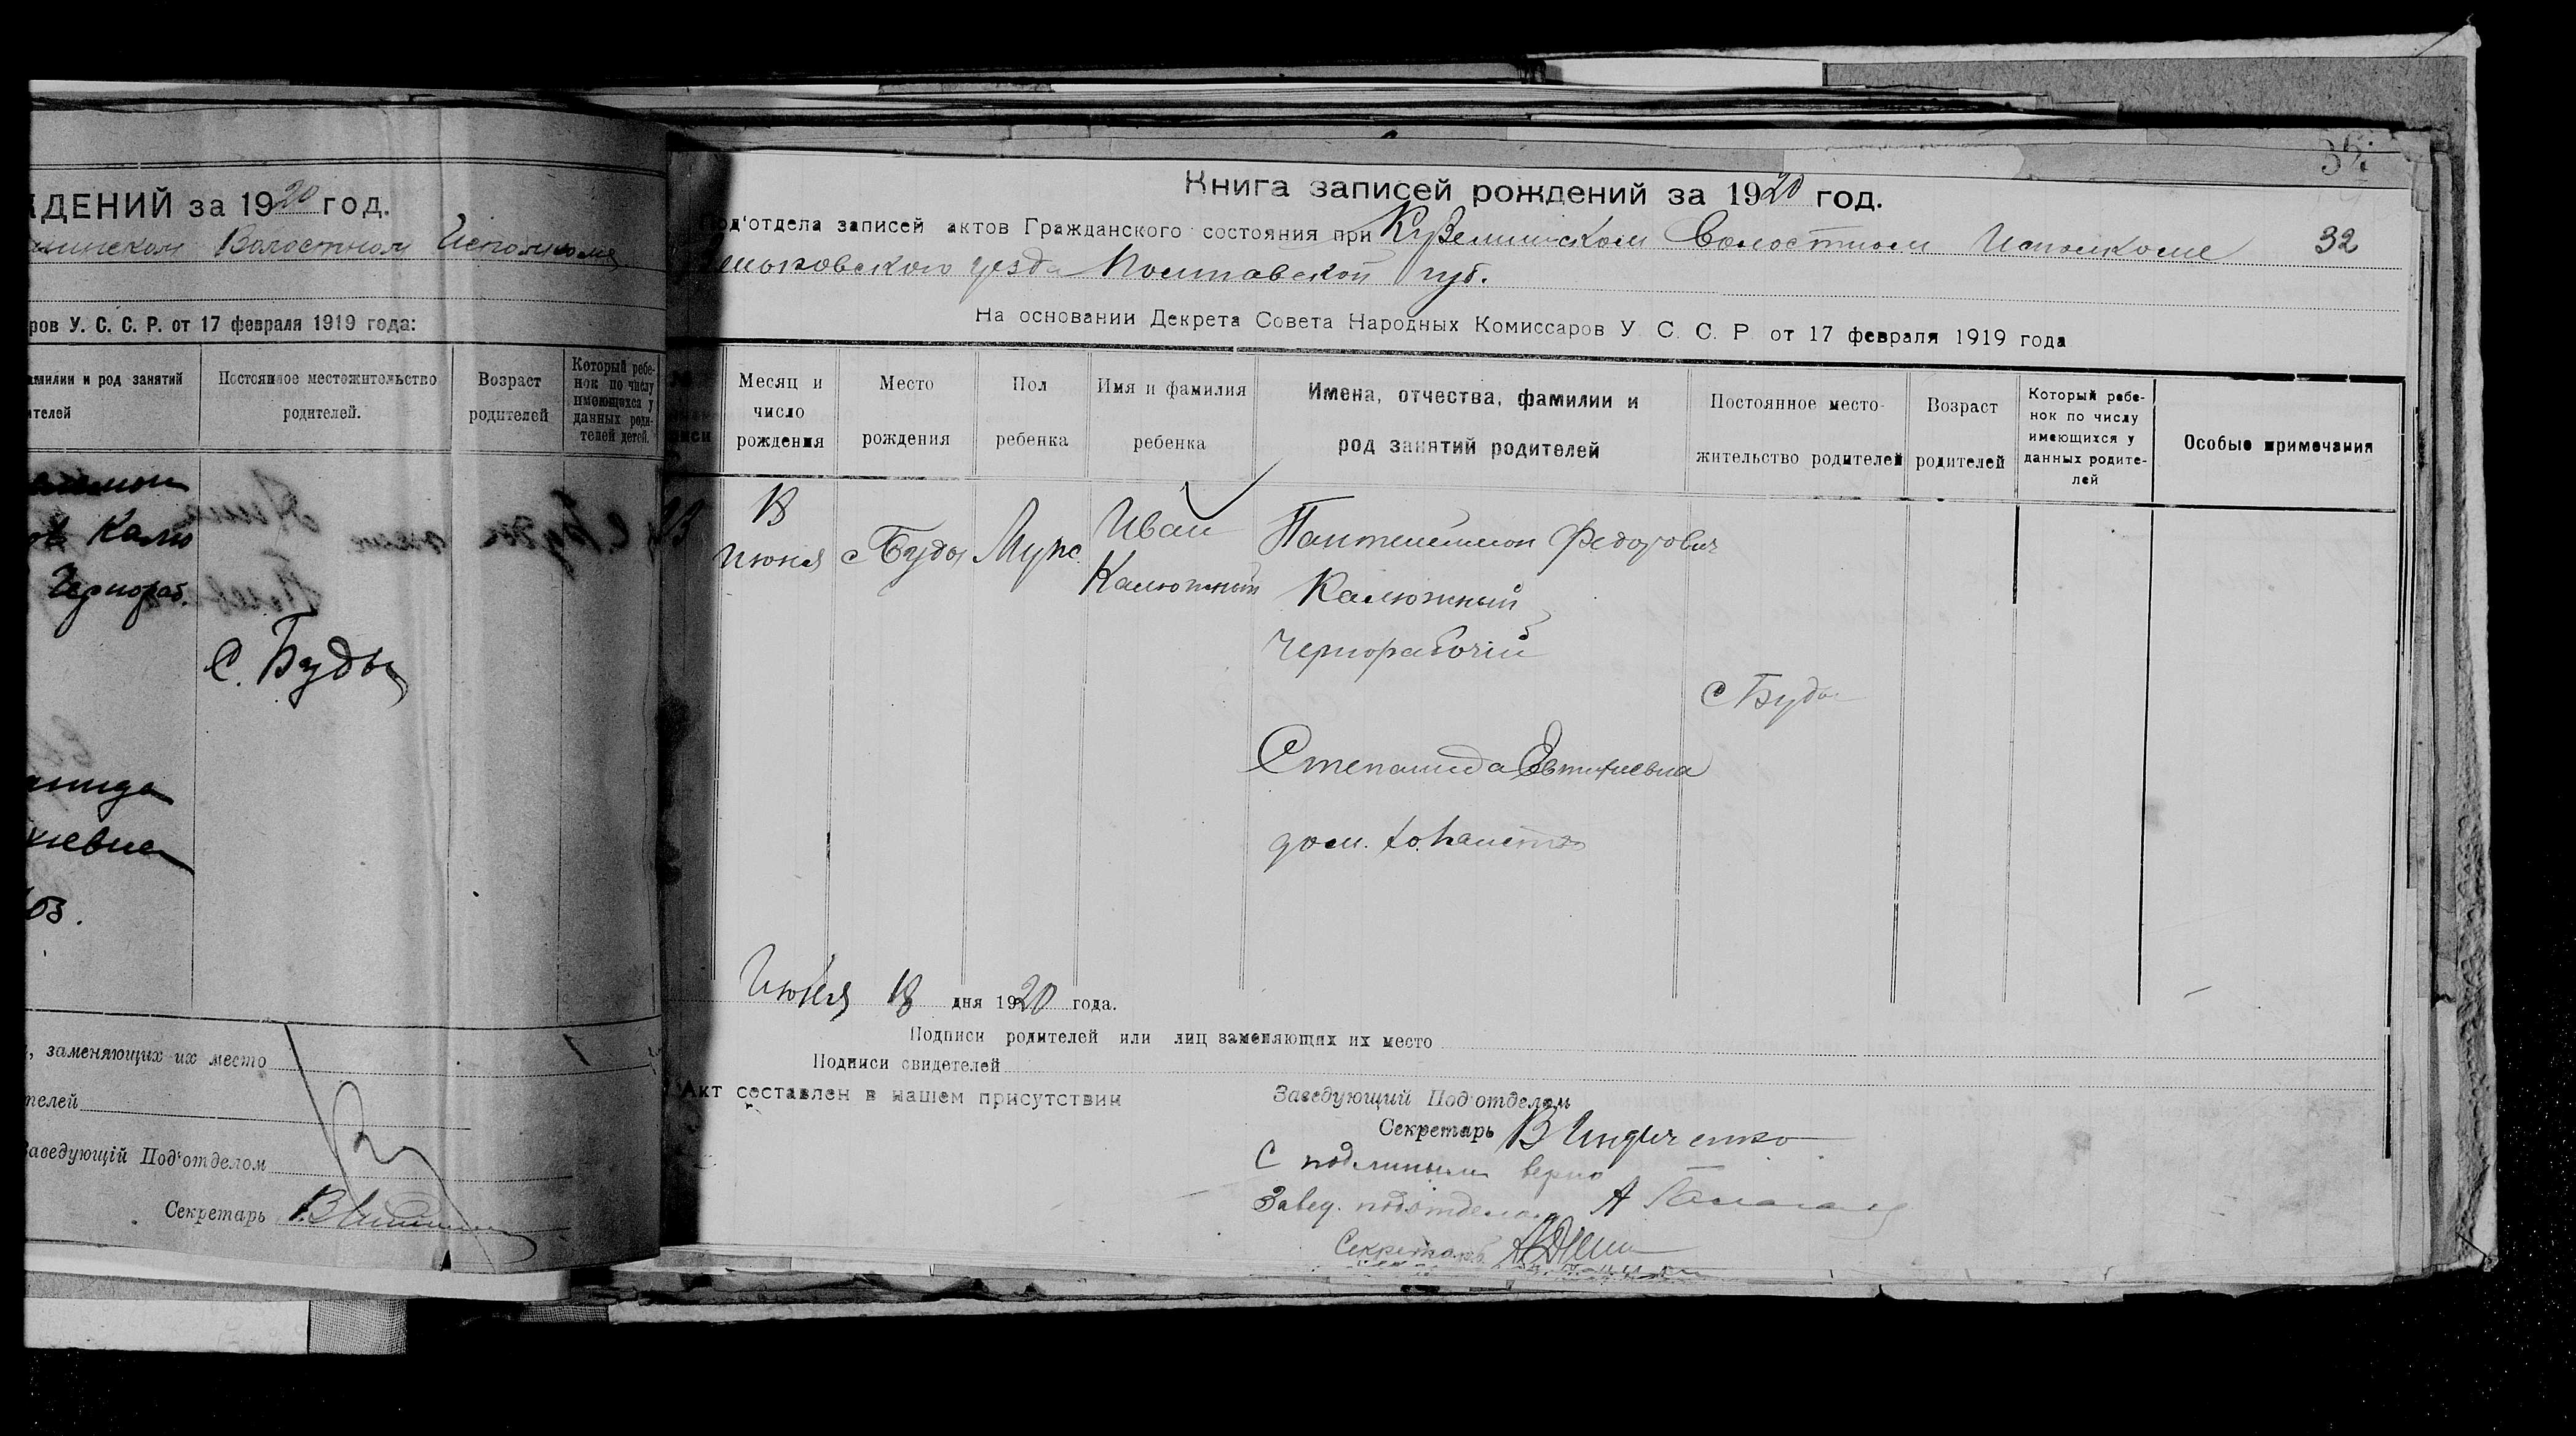 ЖДЕНИЙ за 1920 год.
Волостном Исполкоме
ров У. С. С. Р. от 17 февраля 1919 года:
амилии и род занятий
ителей
Постоянное местожительство
родителей.
Возраст
родителей
Который ребе-
нок по числу
имеющихся у
данных роди-
телей детей.
Калю
Чернораб.
С. Буды
анида
иевна
, заменяющих их место
телей
Заведующій Под'отделом
Секретарь
35
Книга записей рождений за 1920 год.
Под'отдела записей актов Гражданского состояния при Волостном Исполкоме 32
уезда Полтавской губ.
На основании Декрета Совета Народных Комиссаров У. С. С. Р. от 17 февраля 1919 года
Месяц и
число
рождения
Место
рождения
Пол
ребенка
Имя и фамилия
ребенка
Имена, отчества, фамилии и
род занятий родителей
Постоянное место-
жительство родителей
Возраст
родителей
Который ребе-
нок по числу
имеющихся у
данных родите-
лей
Особые примечания
18
Июня
с Буды
Муж.
Иван
Калюжный
Пантелеймон Федорович
Калюжный
Чернорабочій
Степанида Евтихиевна
дом.
С Буды
Июня 18 дня 1920 года.
Подписи родителей или лиц заменяющих их место
Подписи свидетелей
Акт составлен в нашем присутствии
Заведующий Под'отделом
Секретарь В Индиченко
С подлинным верно
Завед. подотделом А
Секретарь